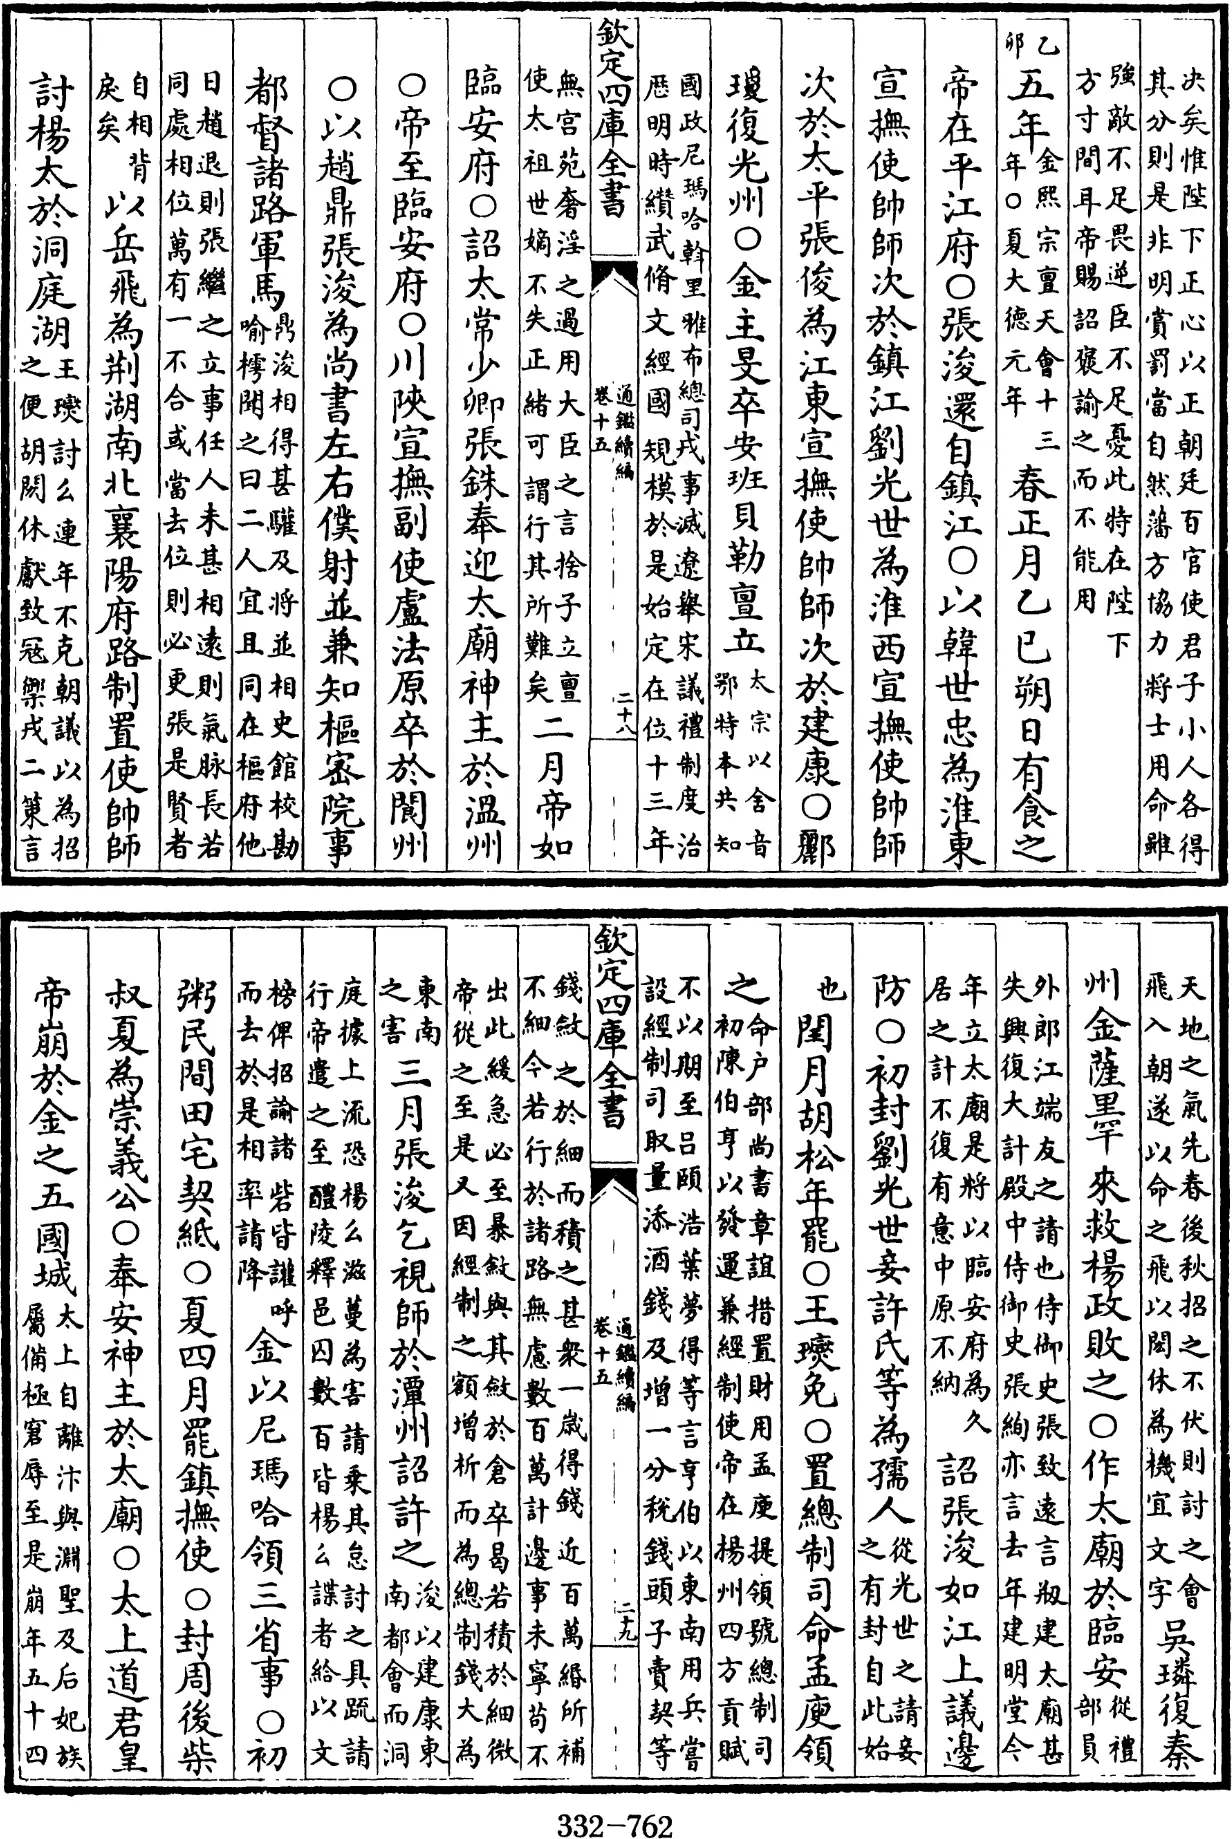 决矣惟陛下正心以正朝廷百官使君子小人各得
其分則是非明賞罰當自然藩方協力將士用命雖
強敵不足畏逆臣不足憂此特在陛下
方寸間耳帝賜詔褒諭之而不能用
乙卯五年金熙宗亶天會十三年○夏大德元年春正月乙巳朔日有食之
帝在平江府○張浚還自鎮江○以韓世忠為淮東
宣撫使帥師次於鎮江劉光世為淮西宣撫使帥師
次於太平張俊為江東宣撫使帥師次於建康○酈
瓊復光州○金主旻卒安班貝勒亶立太宗以舍音鄂特本共知
國政尼瑪哈斡里雅布總司戎事滅遼舉宋議禮制度治
歴明時纘武脩文經國規模於是始定在位十三年
欽定四庫全書
通鑑續編
卷十五
二十八
無宮苑奢淫之過用大臣之言捨子立亶使太祖世嫡不失正緒可謂行其所難矣二月帝如
臨安府○詔太常少卿張銖奉迎太廟神主於溫州
○帝至臨安府○川陜宣撫副使盧法原卒於閬州
○以趙鼎張浚為尚書左右僕射並兼知樞密院事
都督諸路軍馬鼎浚相得甚驩及將並相史館校勘喻樗聞之曰二人宜且同在樞府他
日趙退則張繼之立事任人未甚相遠則氣脉長若
同處相位萬有一不合或當去位則必更張是賢者
自相背戾矣以岳飛為荆湖南北襄陽府路制置使帥師
討楊太於洞庭湖王𤫉討么連年不克朝議以為招之便胡閎休獻致寇禦戎二策言
天地之氣先春後秋招之不伏則討之會飛入朝遂以命之飛以閎休為機宜文字吳璘復秦
州金薩里罕來救楊政敗之○作太廟於臨安從禮部員
外郎江端友之請也侍御史張致遠言剏建太廟甚
失興復大計殿中侍御史張絢亦言去年建明堂今
年立太廟是將以臨安府為久居之計不復有意中原不納詔張浚如江上議邊
防○初封劉光世妾許氏等為孺人從光世之請妾之有封自此始
也閏月胡松年罷○王𤫉免○置總制司命孟庾領
之命户部尚書章誼措置財用孟庾提領號總制司
初陳伯亨以發運兼經制使帝在揚州四方貢賦
不以期至呂頤浩葉夢得等言亨伯以東南用兵嘗
設經制司取量添酒錢及增一分稅錢頭子賣契等
欽定四庫全書
通鑑續編
卷十五
二十九
錢斂之於細而積之甚衆一歲得錢近百萬緡所補
不細今若行於諸路無慮數百萬計邊事未寧苟不
出此緩急必至暴斂與其斂於倉卒曷若積於細微
帝從之至是又因經制之額增析而為總制錢大為
東南之害三月張浚乞視師於潭州詔許之浚以建康東南都會而洞
庭據上流恐楊么滋蔓為害請乘其怠討之具疏請
行帝遣之至醴陵釋邑囚數百皆楊么諜者給以文
榜俾招諭諸砦皆讙呼而去於是相率請降金以尼瑪哈領三省事○初
粥民間田宅契紙○夏四月罷鎮撫使○封周後柴
叔夏為崇義公○奉安神主於太廟○太上道君皇
帝崩於金之五國城太上自離汴與淵聖及后妃族屬備極窘辱至是崩年五十四
332-762